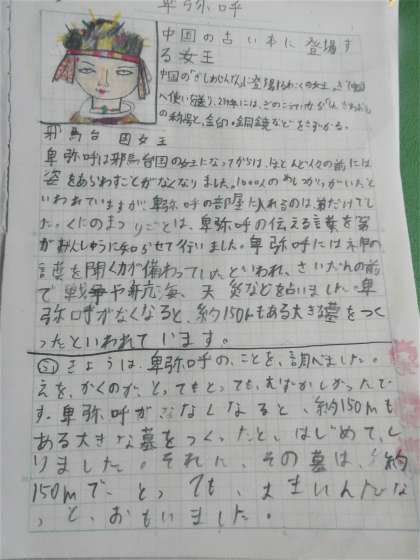 卑弥呼
中国の古い本に登場す
る女王
中国の「ぎしわじんでん」に登場するわこくの女王。ぎ
へ使いを送り、239年には、ぎのこうていから
の称号と、金印・銅鏡などをさずかる。
邪馬台国女王
卑弥呼は邪馬台国の女王になってからは、ほとんど人々の前には
姿をあらわすことがなくなりました。1000人のめしつかいがいたと
いわれていますが、卑弥呼の部屋に入れるのは弟だけでし
た。くにのまつりごとは、卑弥呼の伝える言葉を弟
がみんしゅうに知らせて行いました。卑弥呼には神の
言葉を聞く力が備わっていた、といわれ、さいだんの前
で戦争や航海、天災などを占いました。卑
弥呼がなくなると、約150mもある大きな墓をつく
ったといわれています。
きょうは、卑弥呼の、ことを、調べました。
えを、かくのが、とってもとっても、むずかしかったで
す。卑弥呼がなくなると、約150mも
ある大きな墓をつくったと、はじめて、し
りました。それに、その墓は、約
150mで、とっても、
っと、おもいました。